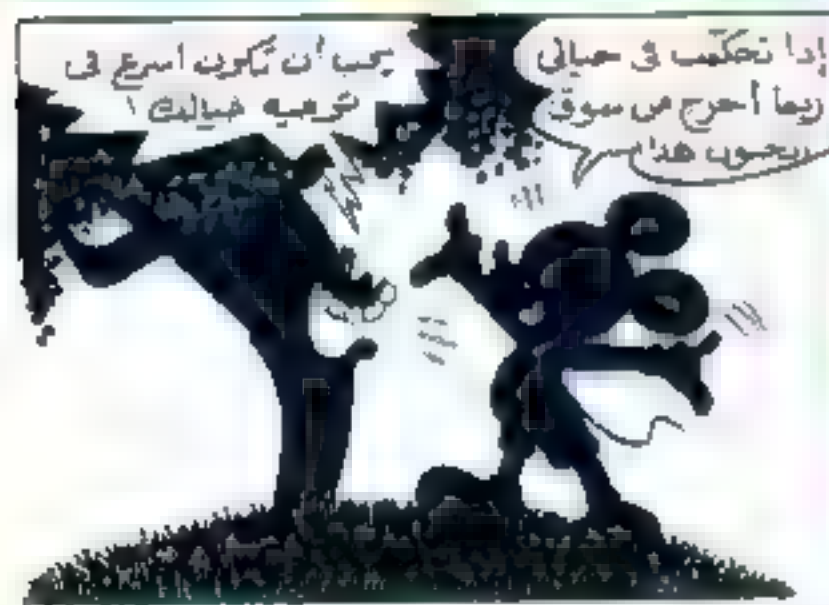 إذا تحكمت في خيالي
ربما أخرج من سوق
هذا
يجب أن تكون أسرع في
توجيه خيالك !